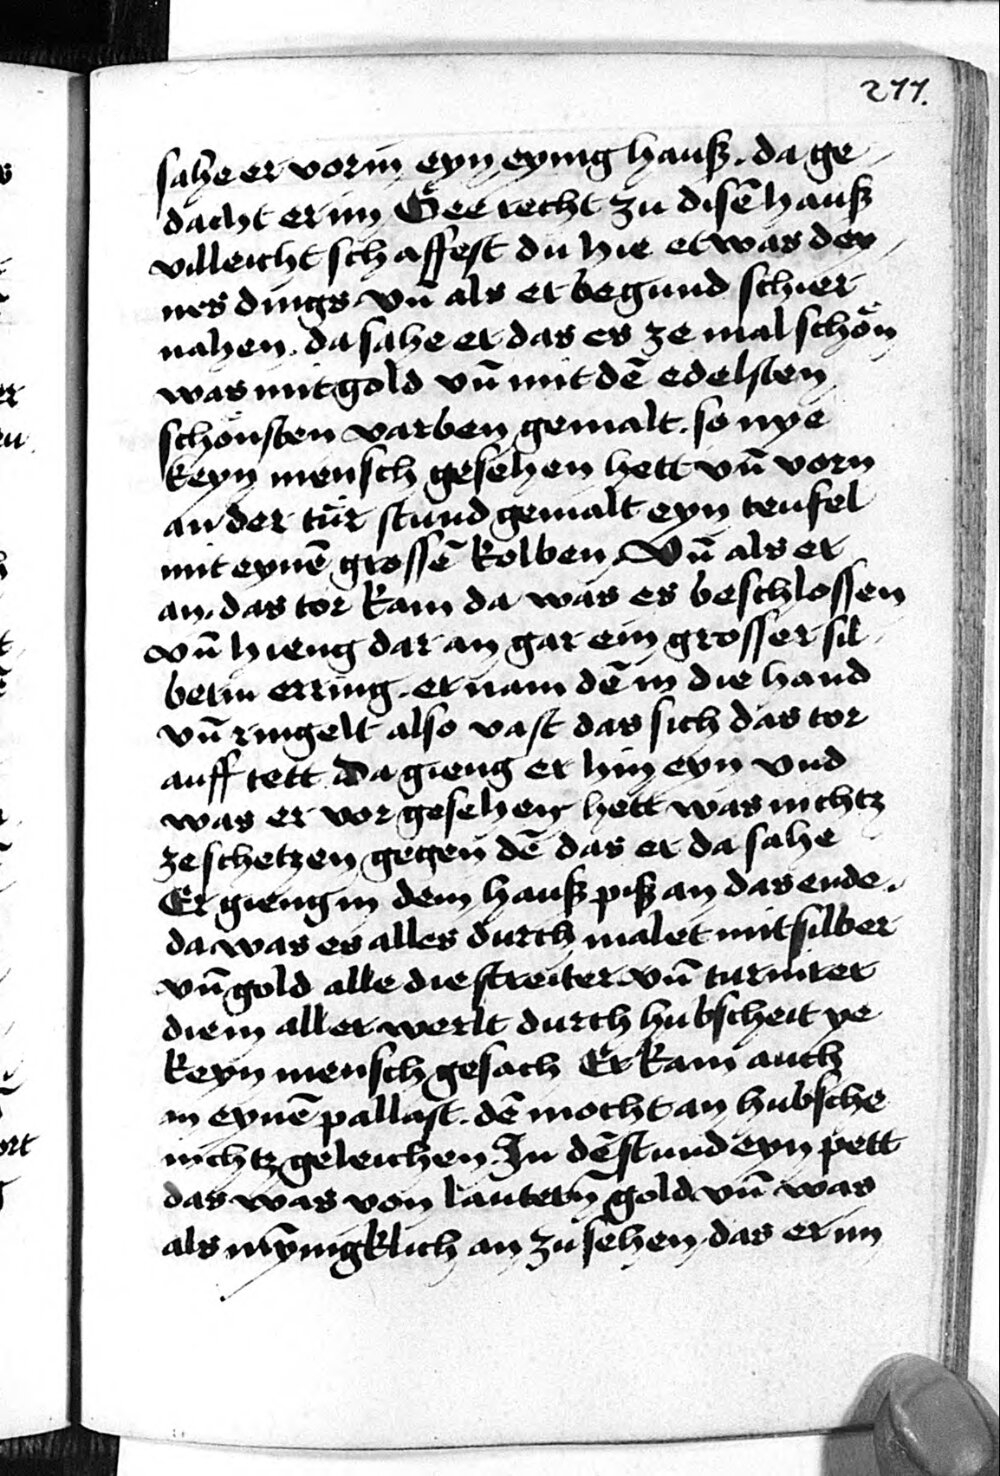 277.
sahe er vorm eyn eynig hauß. da ge-
dacht er im Gee recht zu disē hauß
villeicht schaffest du hie etwas dey-
nes dings vn̄ als er begund schier
nahen. da sahe er das es ze mal schön
was mit gold vn̄ mit dē edelsten
schönsten varben gemalt. so nye
keyn mensch gesehen hett vn̄ vorn
an der tür stund gemalt eyn teufel
mit eynē grossē kolben Vn̄ als er
an das tor kam da was es beschlossen
vn̄ hieng dar an gar ein grosser sil-
berin erring. er nam dē in die hand
vn̄ ringelt also vast das sich das tor
auff tett Da gieng er hin eyn vnd
was er vor gesehen hett was nichtz
ze schetzen gegen dē das er da sahe
Er gieng in dem hauß piß an das ende.
da was es alles durch malet mit silber
vn̄ gold alle die streiter vn̄ turnirer
die in aller werlt durch hubscheit ye
keyn mensch gesach Er kam auch
in eynē pallast. dē mocht an hubsche
nichtz geleichen In dē stund eyn pett
das was von lauterm gold vn̄ was
als mȳnigklich an zu sehen das er im